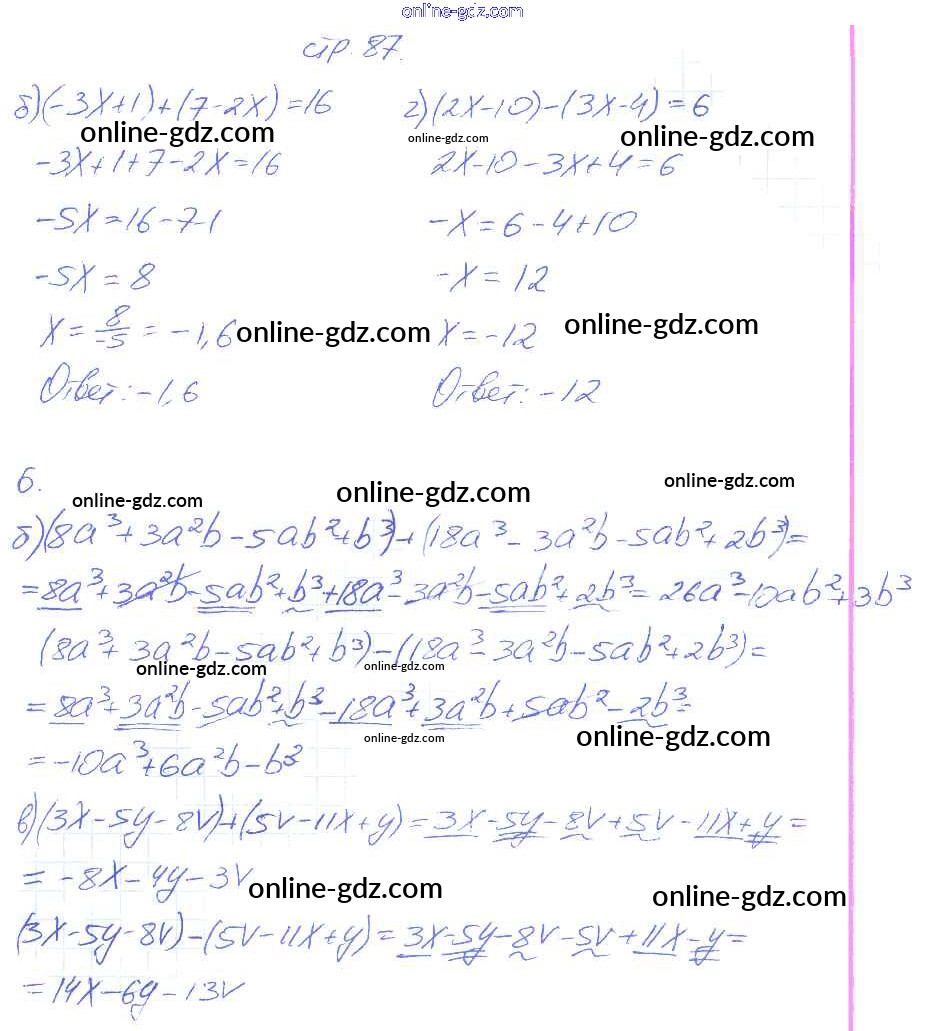 online-gdz.com
стр. 87.
б) (-3x+1)+(7-2x)=16
г) (2x-10)-(3x-4)=6
online-gdz.com online-gdz.com online-gdz.com
-3x+1+7-2x=16
2x-10-3x+4=6
-5x=16-7-1
-x=6-4+10
-5x=8
-x=12
x=8/-5=-1,6 online-gdz.com
x=-12 online-gdz.com
Ответ: -1,6
Ответ: -12
6.
online-gdz.com online-gdz.com online-gdz.com
б) (8a³+3a²b-5ab²+b³)+(18a³-3a²b-5ab²+2b³)=
=8a³+3a²b-5ab²+b³+18a³-3a²b-5ab²+2b³=26a³-10ab²+3b³
(8a³+3a²b-5ab²+b³)-(18a³-3a²b-5ab²+2b³)=
online-gdz.com online-gdz.com
=8a³+3a²b-5ab²+b³-18a³+3a²b+5ab²-2b³=
online-gdz.com online-gdz.com
=-10a³+6a²b-b³
в) (3x-5y-8v)+(5v-11x+y)=3x-5y-8v+5v-11x+y=
=-8x-4y-3v
online-gdz.com online-gdz.com
(3x-5y-8v)-(5v-11x+y)=3x-5y-8v-5v+11x-y=
=14x-6y-13v